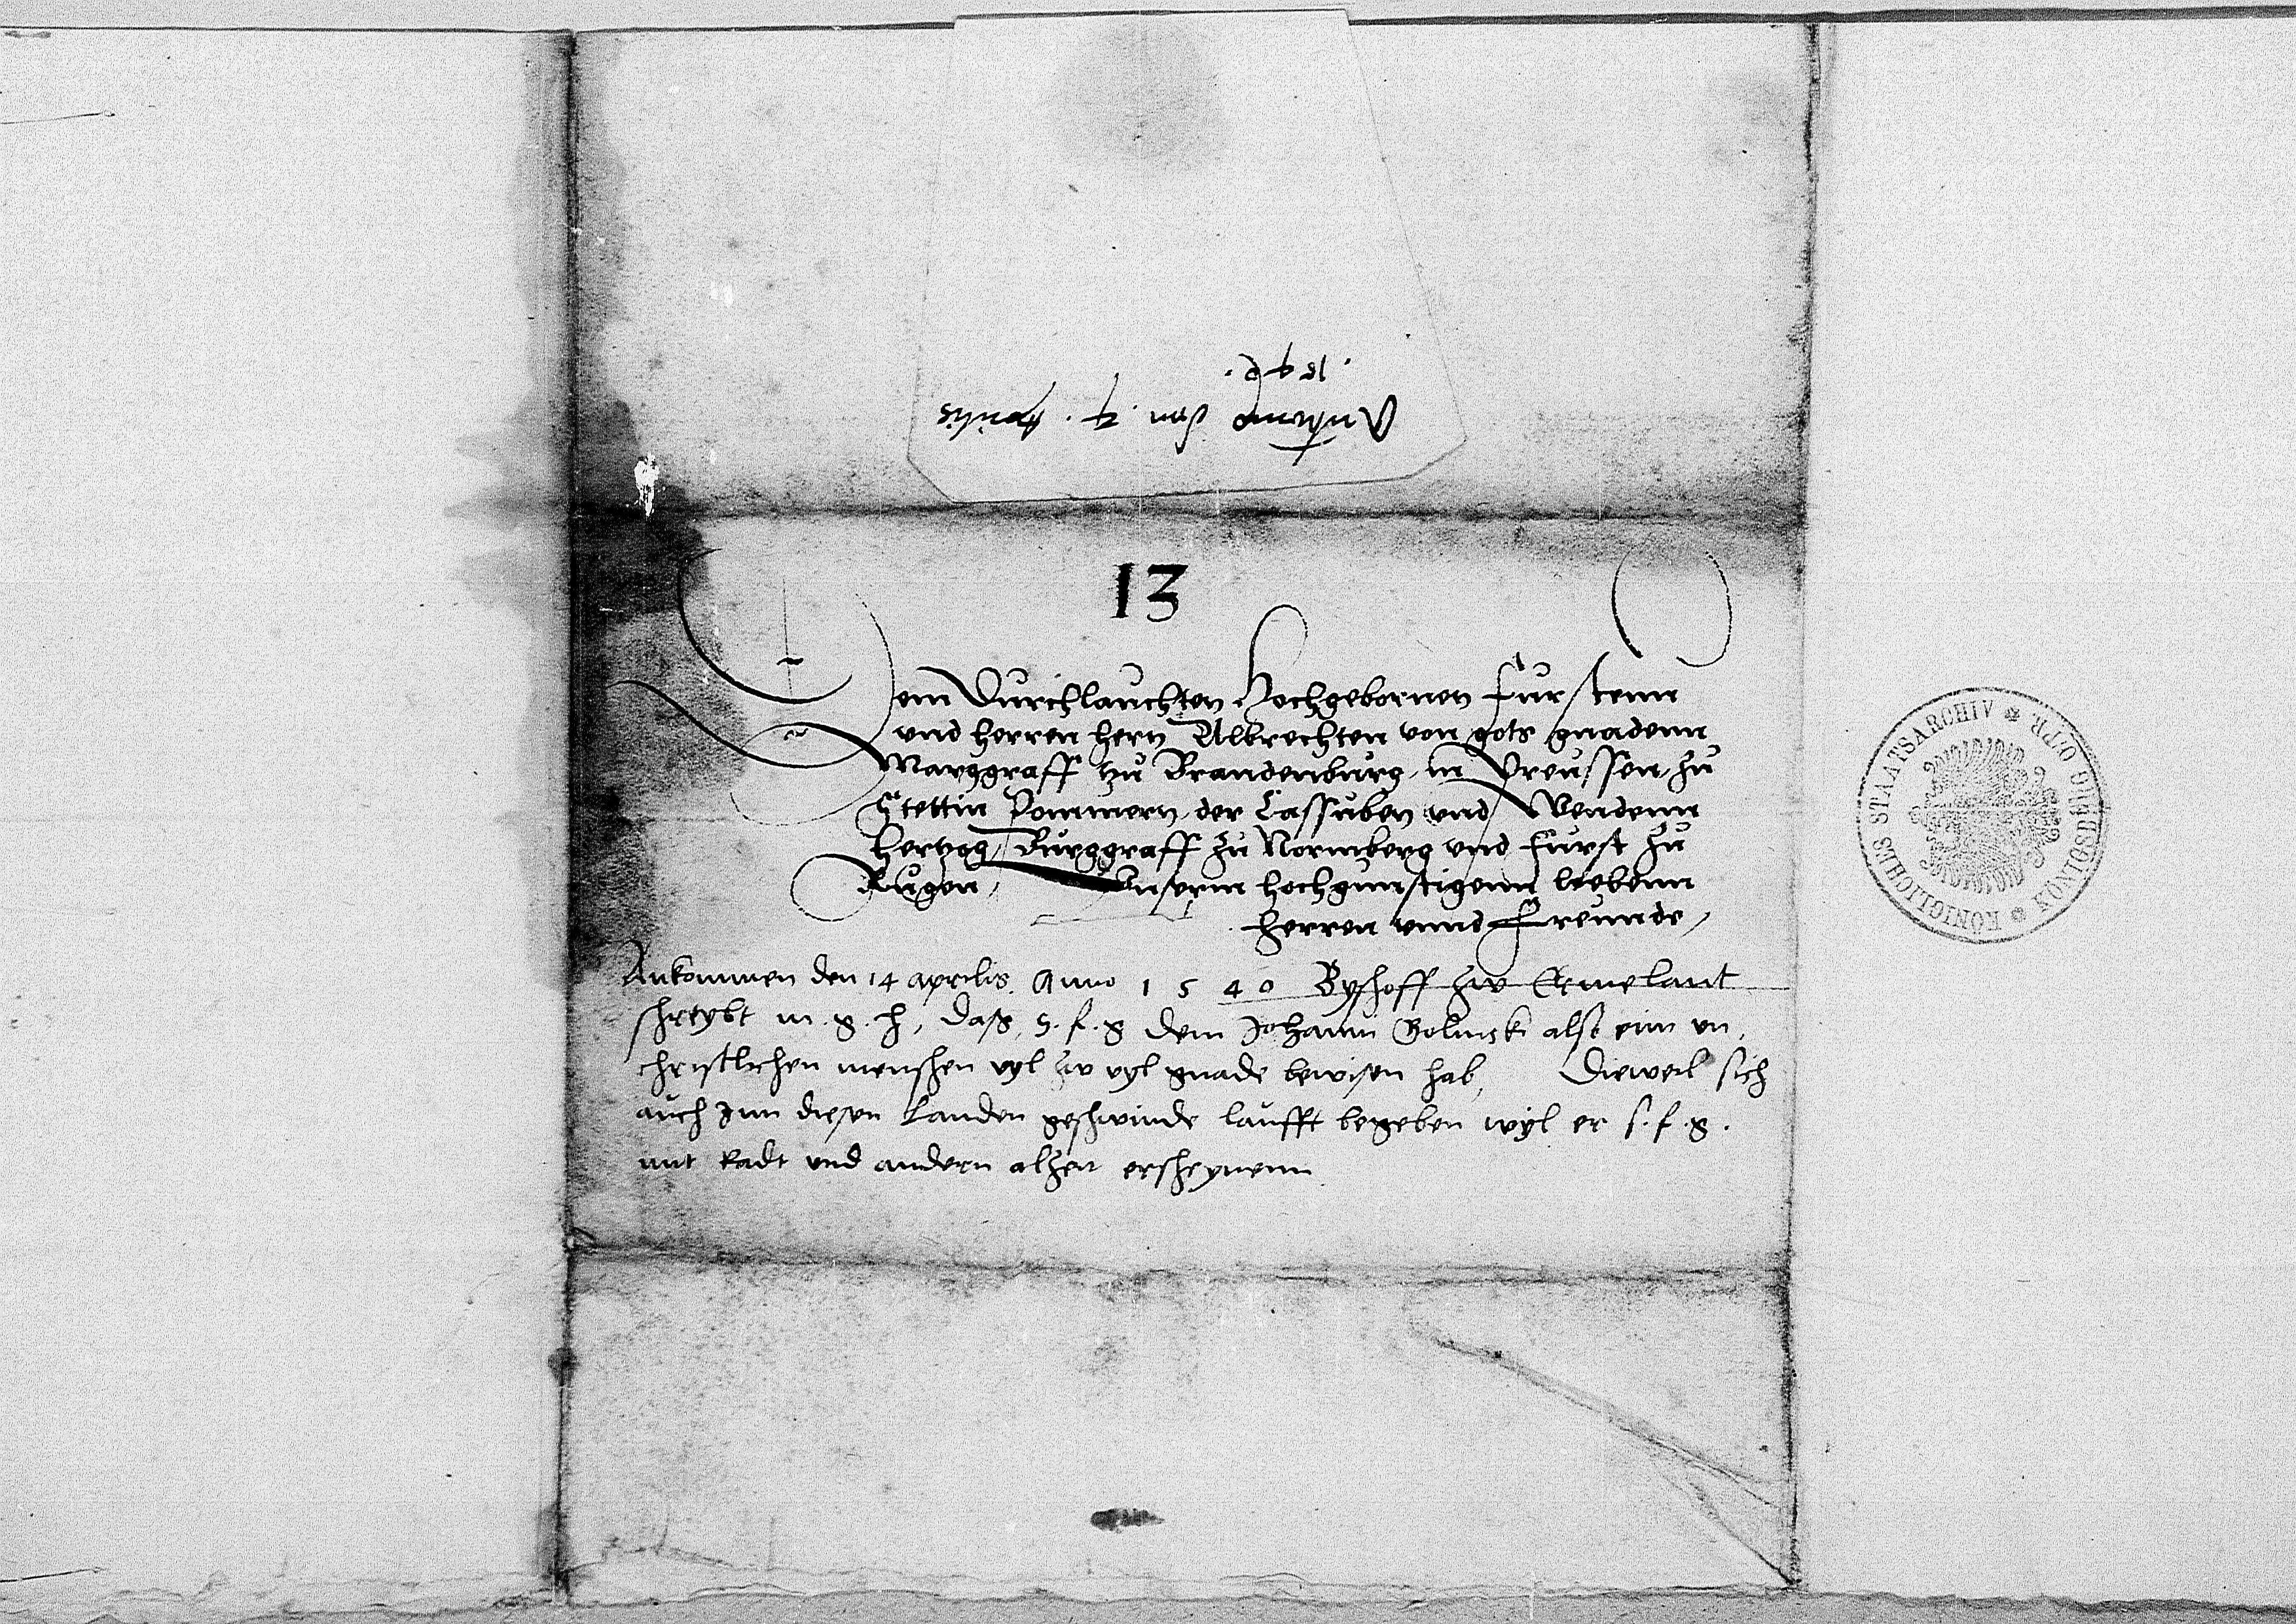 Ankome den . 14 . Aprilis
. 1540 .
13
Dem Durchlauchten Hochgebornen Furstenn
und herren hern Albrechten von gots gnadenn
Marggraff zu Brandenburg, in Preussen, zu
Stettin Pommern, der Cassuben und Wendenn
hertzog, Burggraff zu Nornberg und furst zu
Rugen, Unserm hochgunstigenn liebenn
herren unnd Freunde,
Ankommen den 14 aprilis. Anno 1540 Byschoff zw Ermelant
schreybt m. g. h, das s. f. g dem Johann Golinsk alst eim un,
christlichen menschen vyl zw vyl gnade bewisen hab, Dieweil sich
auch Inn diesen Landen geschwinde laufft begeben wyl er s. f. g.
mit radt und andern alzeit erscheynenn
KÖNIGLICHES STAATSARCHIV * KÖNIGSBERG O/PR. *